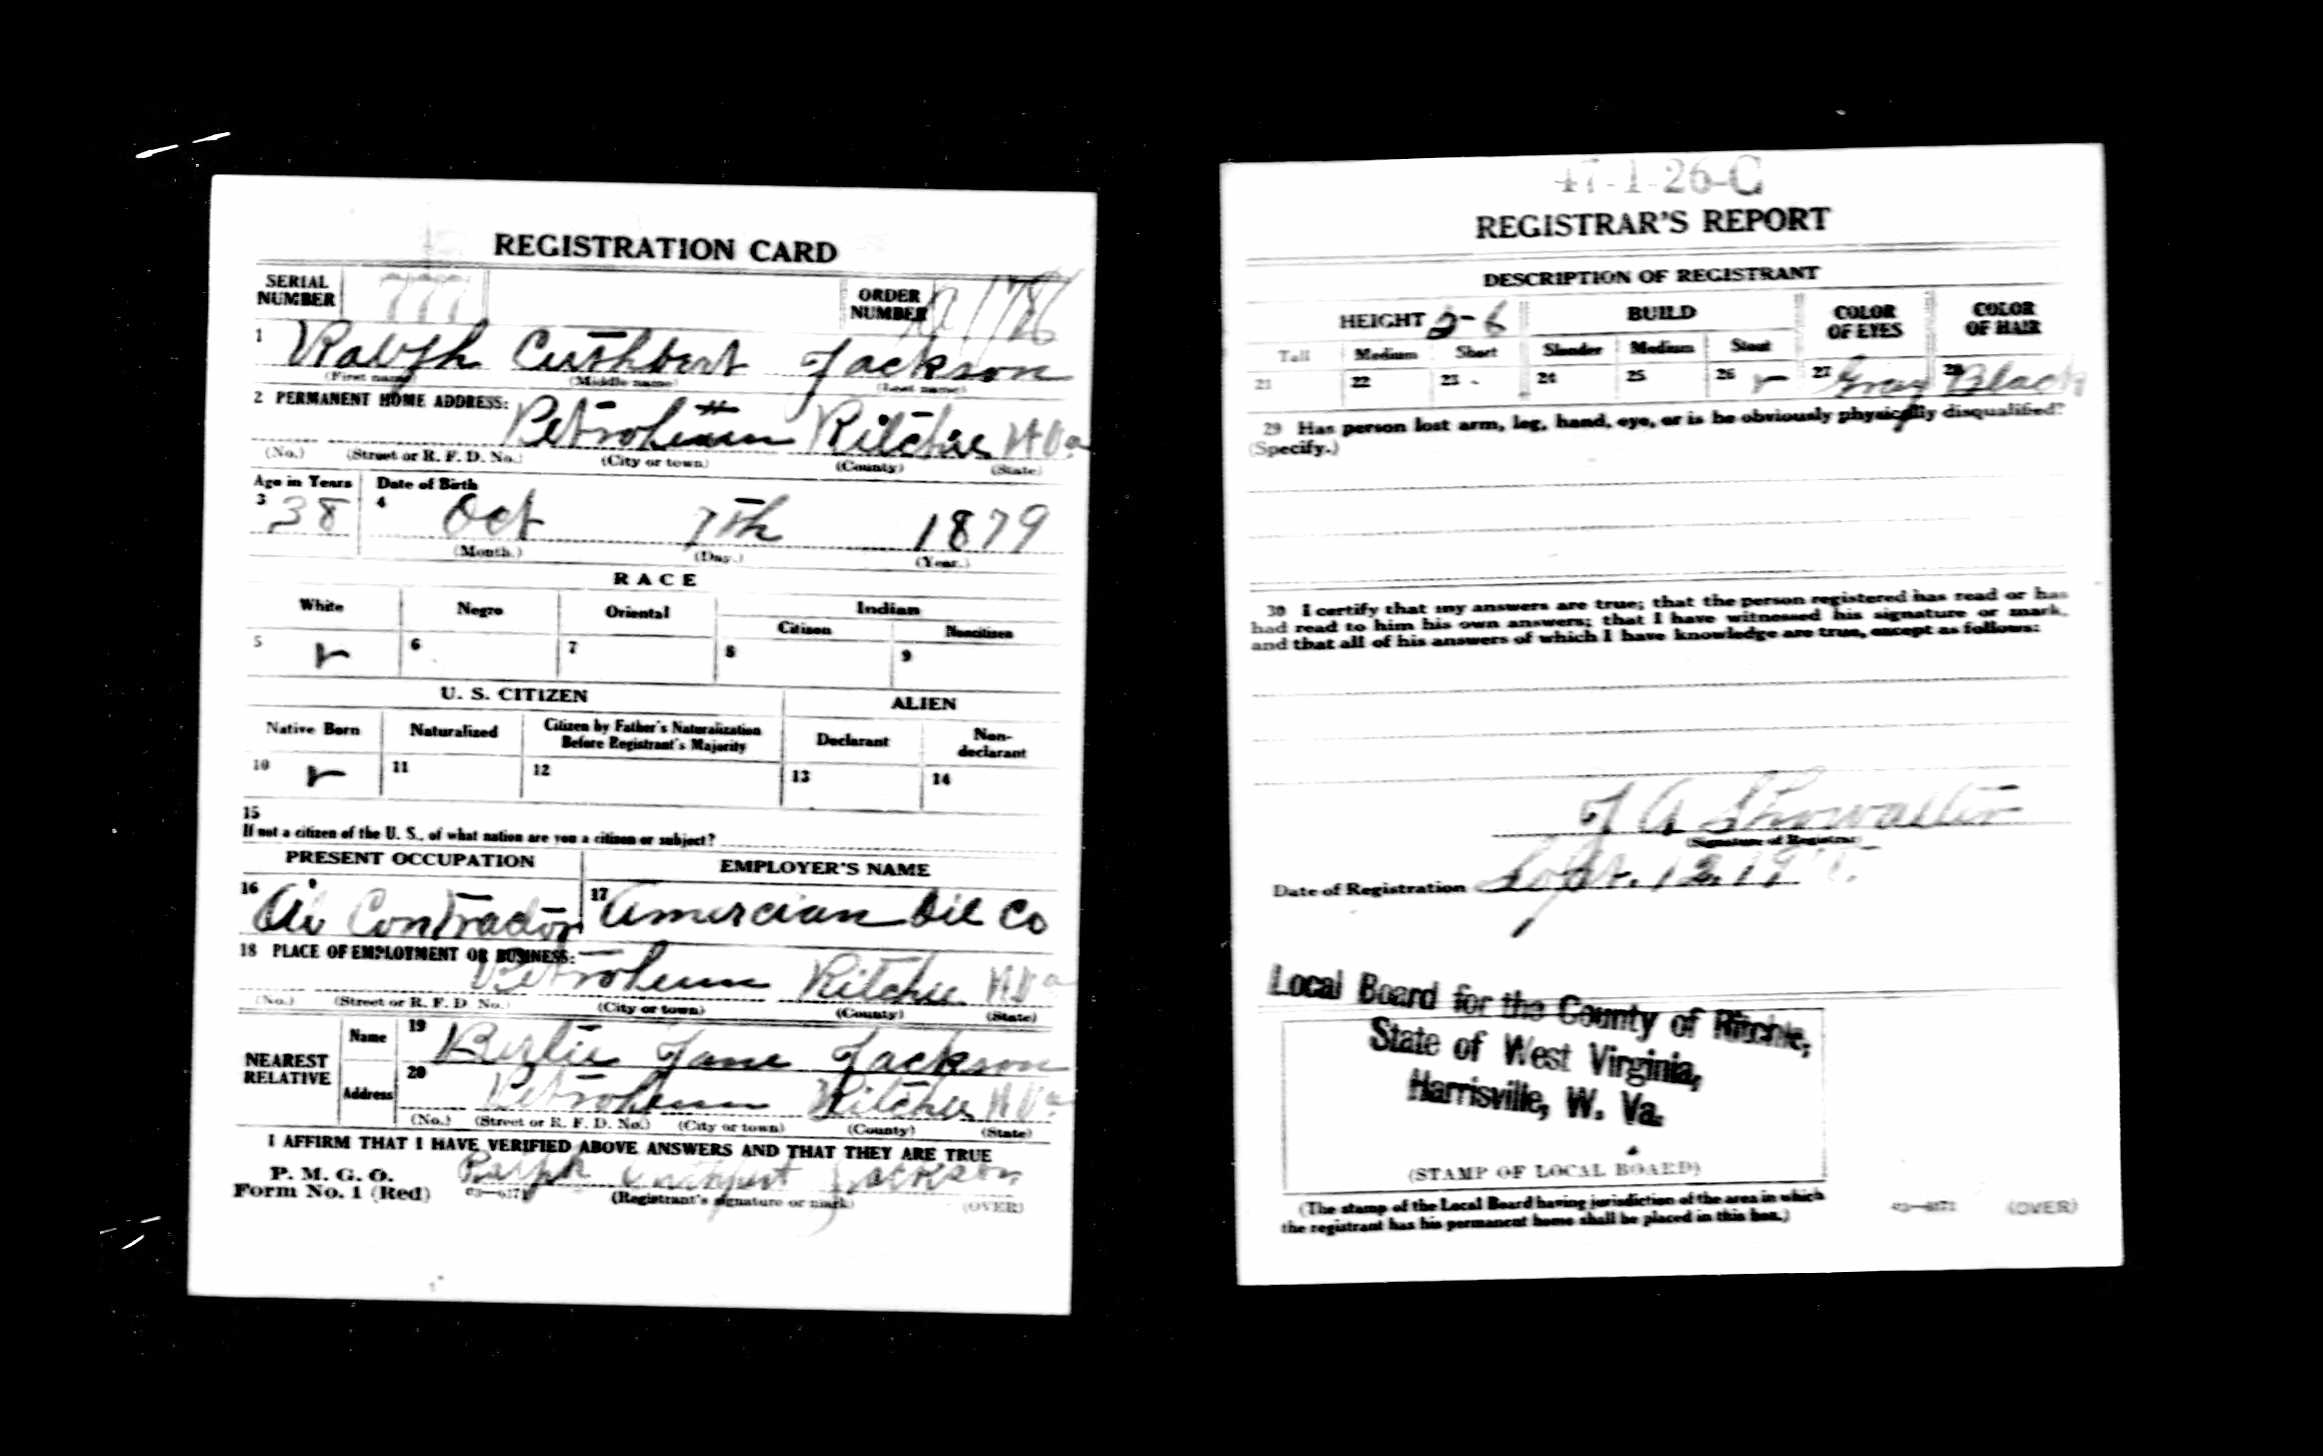 REGISTRATION CARD
SERIAL NUMBER 777 ORDER NUMBER
1 Ralph Cuthbert Jackson
(First name) (Middle name) (Last name)
2 PERMANENT HOME ADDRESS: Petroleum Ritchie W Va
(No.) (Street or R. F. D. No.) (City or town) (County) (State)
Age in Years Date of Birth
3 38 4 Oct 7th 1879
(Month.) (Day.) (Year.)
RACE
White Negro Oriental Indian
Citizen Noncitizen
5 6 7 8 9
U. S. CITIZEN ALIEN
Native Born Naturalized Citizen by Father's Naturalization Before Registrant's Majority Declarant Non-declarant
10 11 12 13 14
15
If not a citizen of the U. S., of what nation are you a citizen or subject?
PRESENT OCCUPATION EMPLOYER'S NAME
16 Oil Contractor 17 Amercian Oil Co
18 PLACE OF EMPLOYMENT OR BUSINESS: Petroleum Ritchie W Va
(No.) (Street or R. F. D. No.) (City or town) (County) (State)
NEAREST RELATIVE Name 19 Jane Jackson
Address 20 Petroleum Ritchie W Va
(No.) (Street or R. F. D. No.) (City or town) (County) (State)
I AFFIRM THAT I HAVE VERIFIED ABOVE ANSWERS AND THAT THEY ARE TRUE
P. M. G. O.
Form No. 1 (Red) 03—6171 Ralph Cuthbert Jackson
(Registrant's signature or mark) (OVER)
47-1-26-C
REGISTRAR'S REPORT
DESCRIPTION OF REGISTRANT
HEIGHT 5-6 BUILD COLOR OF EYES COLOR OF HAIR
Tall Medium Short Slender Medium Stout
21 22 23 24 25 26 27 Gray 28 Black
29 Has person lost arm, leg, hand, eye, or is he obviously physically disqualified?
(Specify.)
30 I certify that my answers are true; that the person registered has read or has
had read to him his own answers; that I have witnessed his signature or mark,
and that all of his answers of which I have knowledge are true, except as follows:
Showalter
(Signature of Registrar)
Date of Registration Sept. 12, 19
Local Board for the County of Ritchie,
State of West Virginia,
Harrisville, W. Va.
(STAMP OF LOCAL BOARD)
(The stamp of the Local Board having jurisdiction of the area in which
the registrant has his permanent home shall be placed in this box.)
03—6171 (OVER)